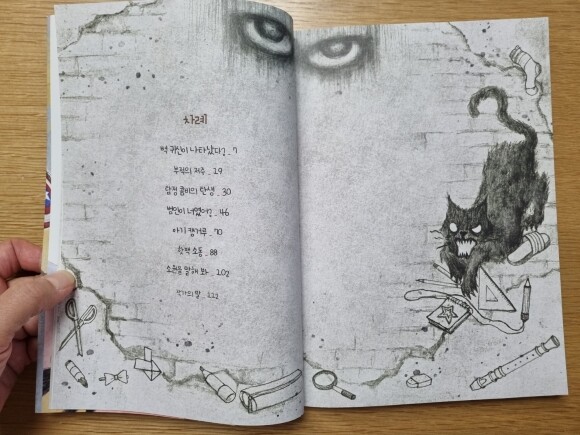 차례
벽 귀신이 나타났다? _ 7
부적의 저주 _ 19
탐정 콤비의 탄생 _ 30
범인이 너였어? _ 46
아기 캥거루 _ 70
한밤 소동 _ 88
소원을 말해 봐 _ 102
작가의 말 _ 122